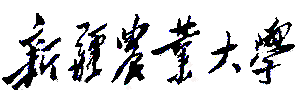 新疆農業大學